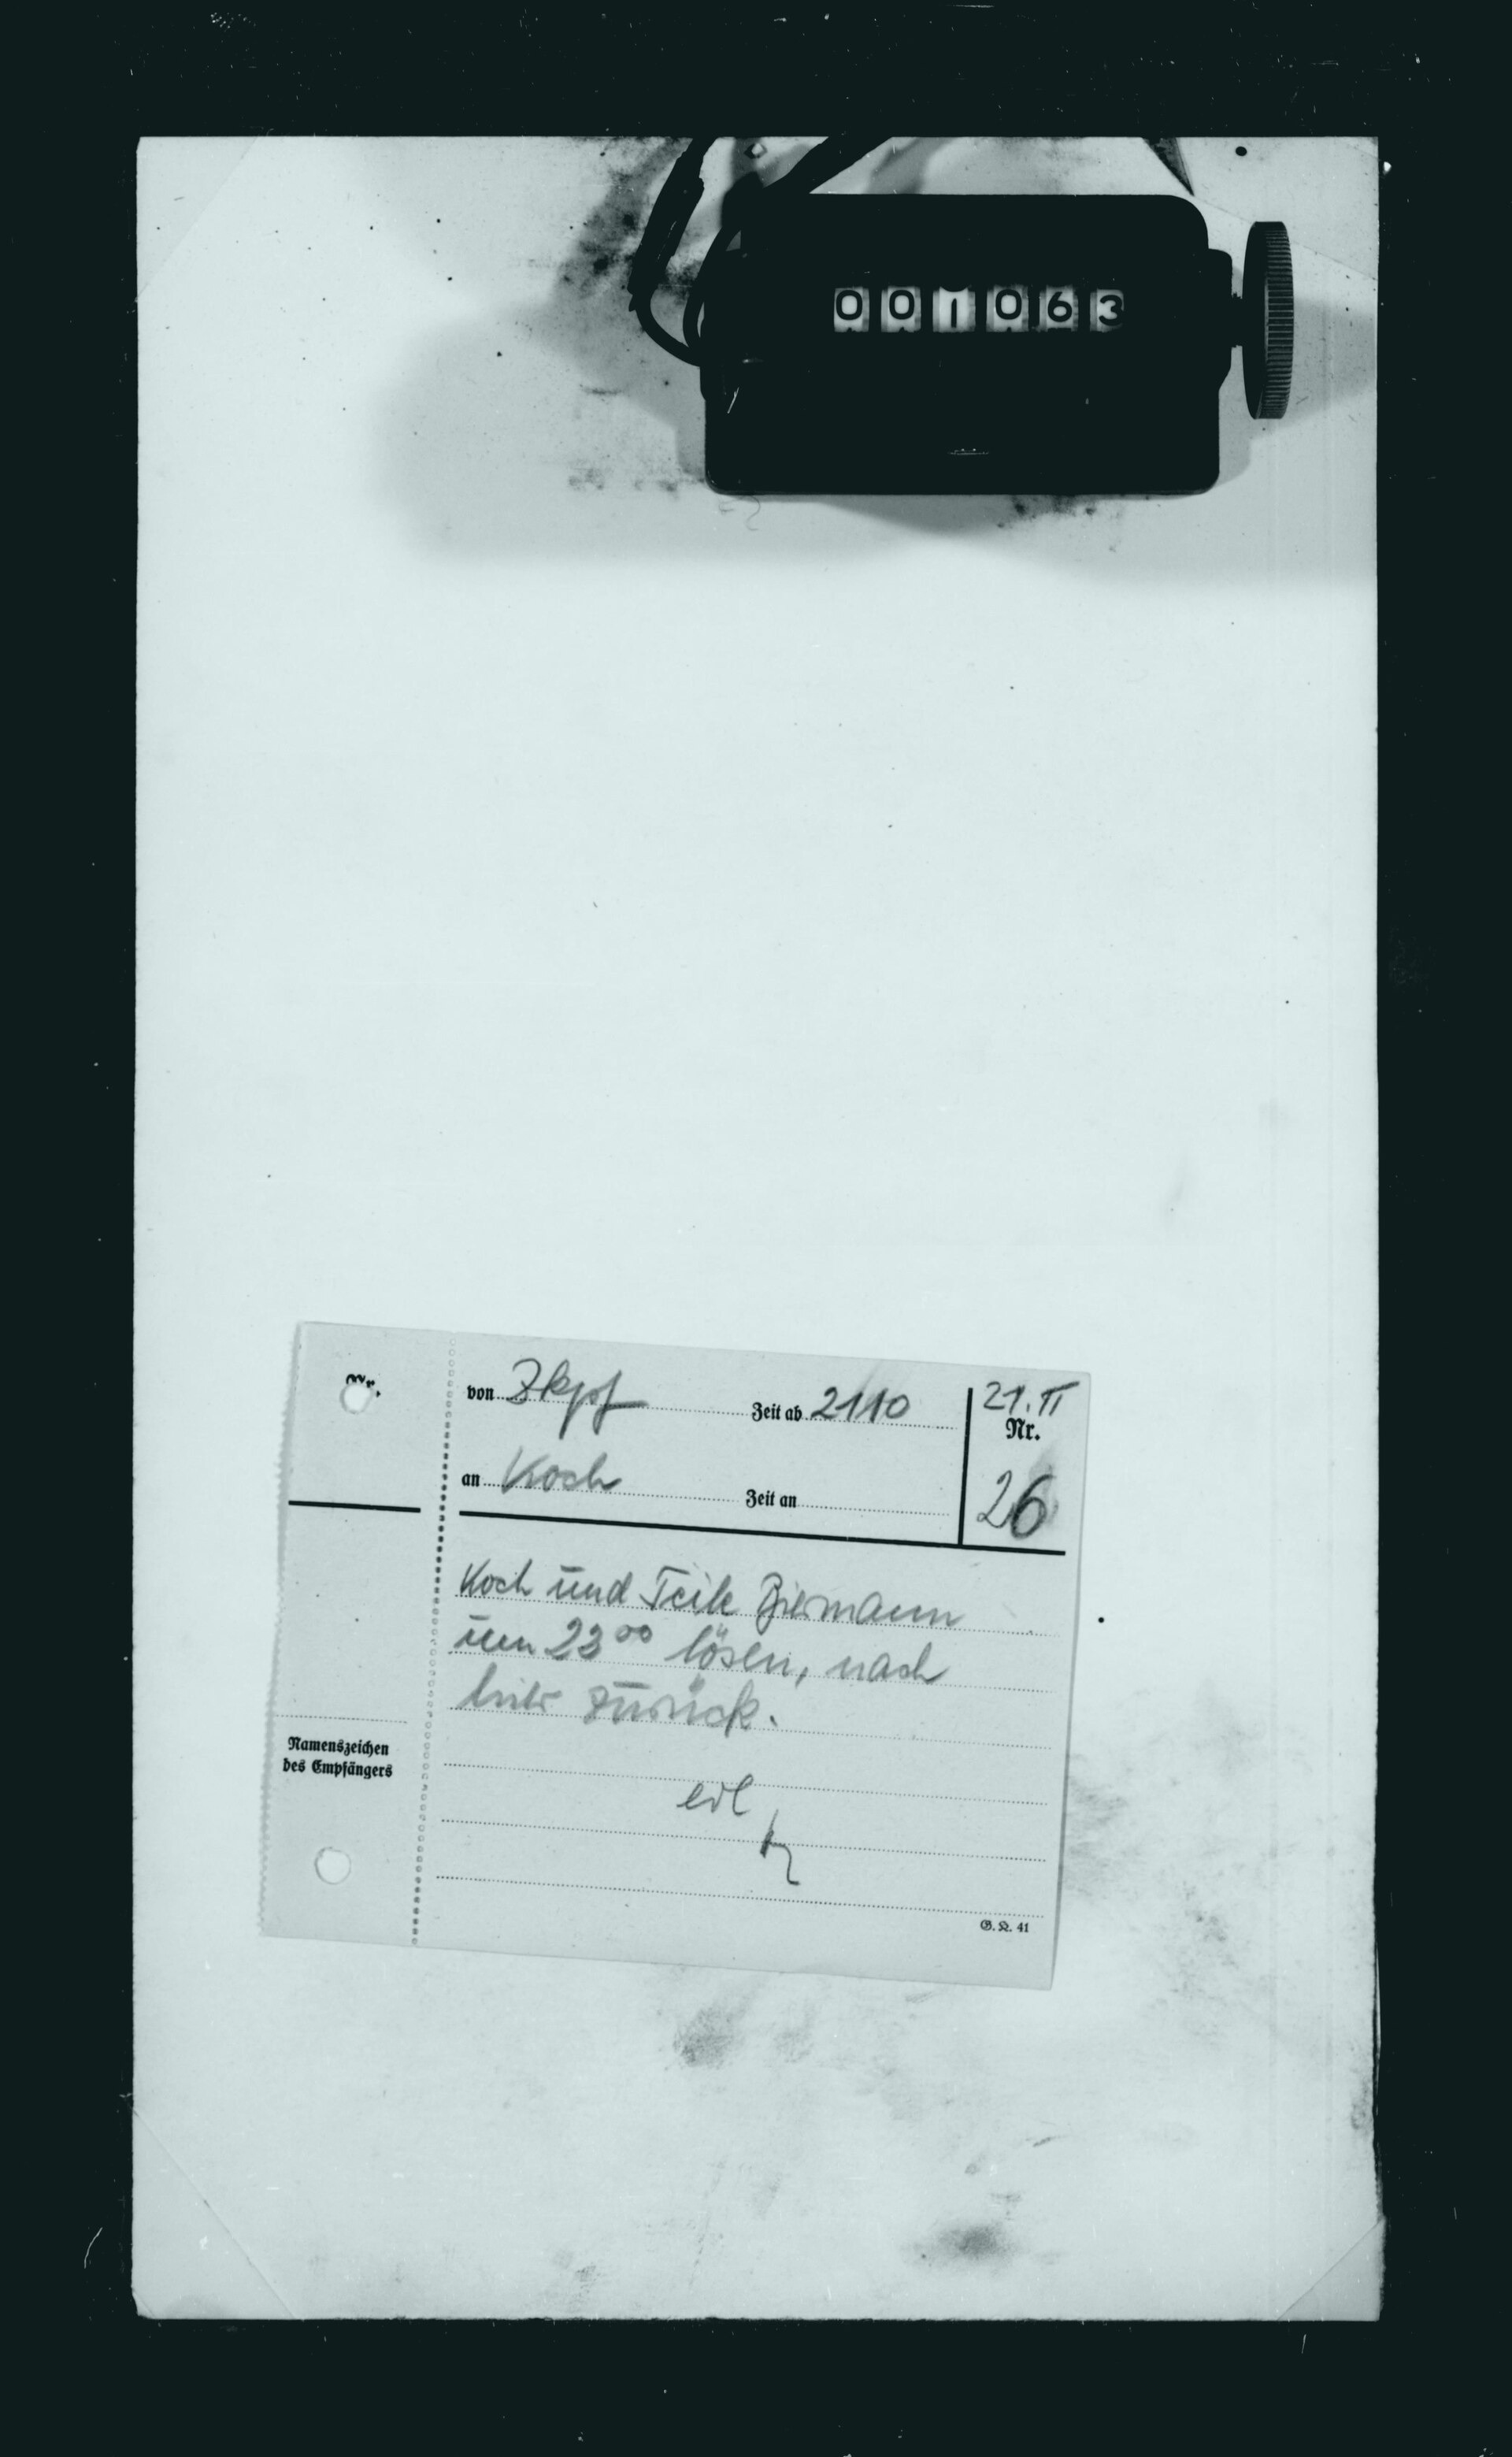 001063
Nr.
von Zkpf Zeit ab 2110
21.II
Nr.
an Koch Zeit an
26
Koch und Teile Biermann
um 23⁰⁰ lösen, nach
hier zurück.
Namenszeichen
des Empfängers
erl
G. K. 41